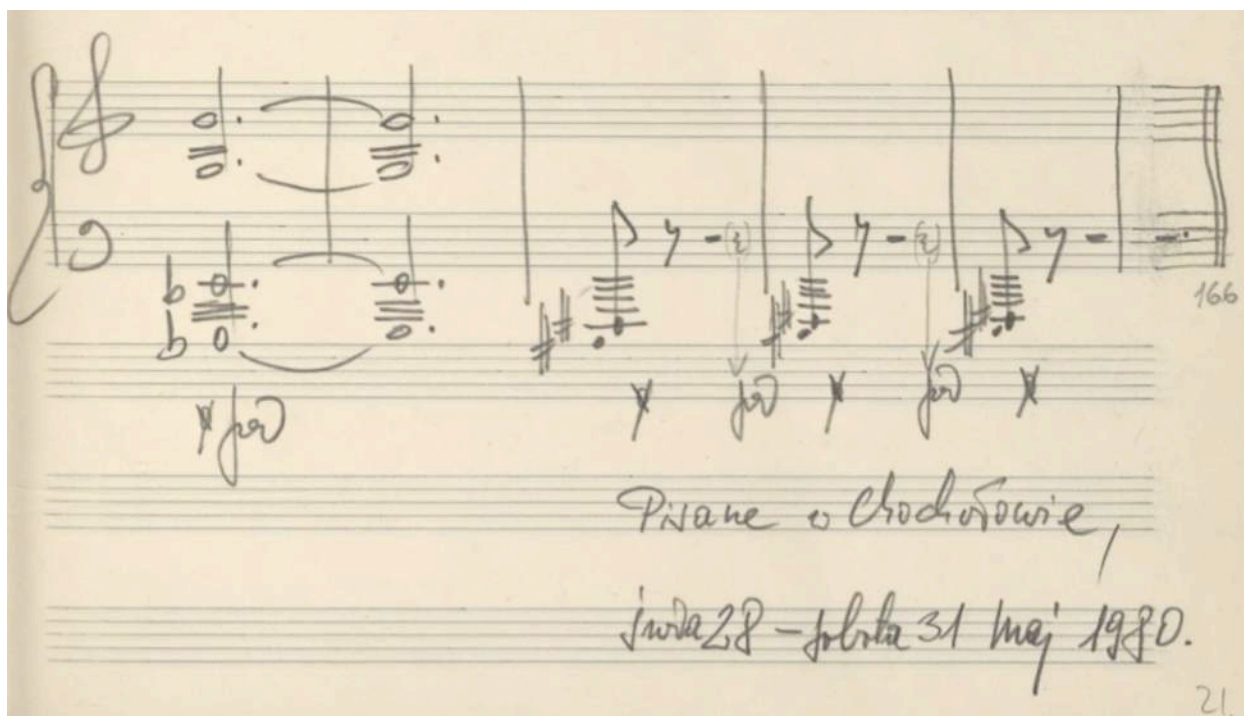 166
ped ped
ped
Pisane w Chochołowie,
środa 28 – sobota 31 maj 1980.
21.